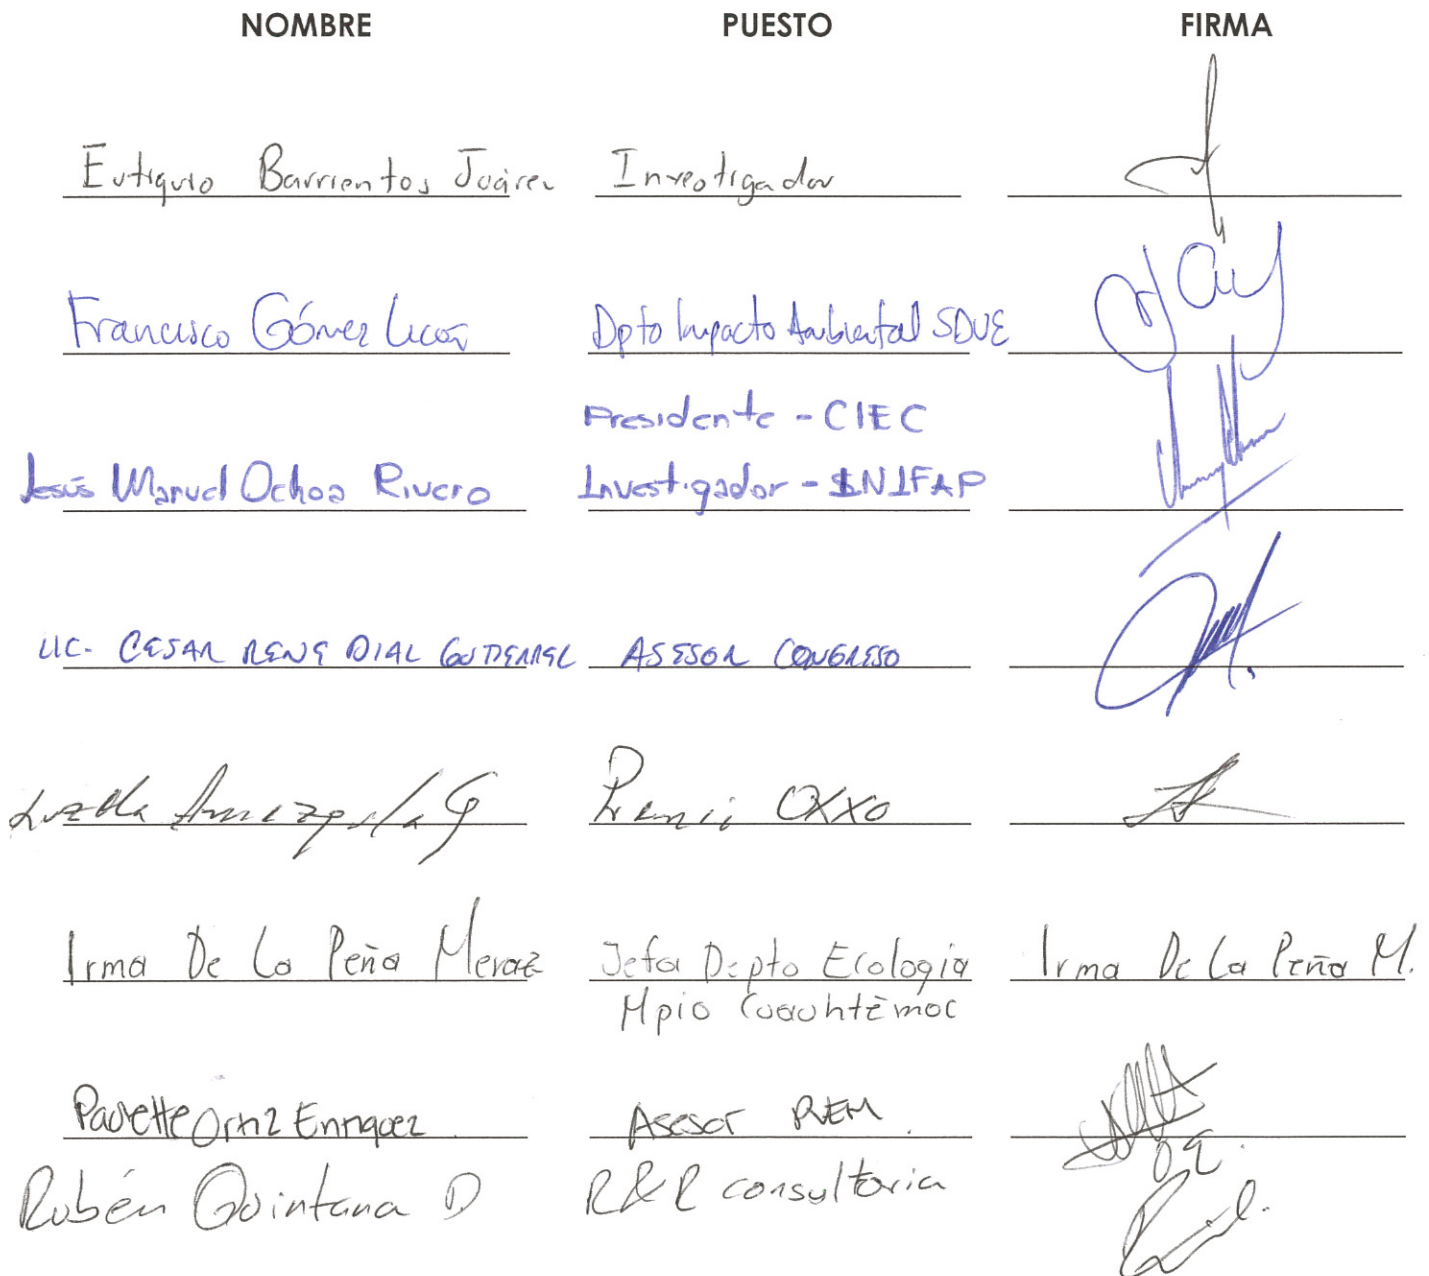 NOMBRE PUESTO FIRMA
Eutiquio Barrientos Juárez Investigador
Francisco Gómez Dpto Impacto Ambiental SDUE
Presidente - CIEC
Jesús Manuel Ochoa Rivero Investigador - INIFAP
LIC. CESAR RENE DIAL GUTIERREZ ASESOR CONGRESO
OXXO
Irma De La Peña Meraz Jefa Depto Ecologia Irma De La Peña M.
Mpio Cuauhtémoc
Paulette Ortiz Enriquez Asesor PVEM
Rubén Quintana D R&R consultoria